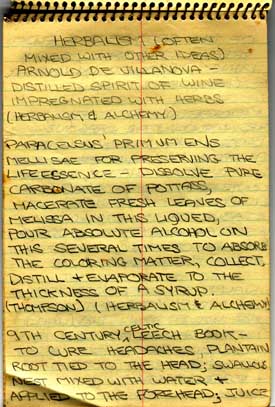 HERBALISM (OFTEN
MIXED WITH OTHER IDEAS)
ARNOLD DE VILLANOVA -
DISTILLED SPIRIT OF WINE
IMPREGNATED WITH HERBS
(HERBALISM & ALCHEMY)
PARACELSUS' PRIMUM ENS
MELLISAE FOR PRESERVING THE
LIFE ESSENCE - DISSOLVE PURE
CARBONATE OF POTTASS,
MACERATE FRESH LEAVES OF
MELISSA IN THIS LIQUED,
POUR ABSOLUTE ALCOHOL ON
THIS SEVERAL TIMES TO ABSORB
THE COLORING MATTER, COLLECT,
DISTILL + EVAPORATE TO THE
THICKNESS OF A SYRUP.
(THOMPSON) (HERBALISM & ALCHEMY)
9TH CENTURY CELTIC LEECH BOOK -
TO CURE HEADACHES, PLANTAIN
ROOT TIED TO THE HEAD; SWALLOWS
NEST MIXED WITH WATER +
APPLIED TO THE FOREHEAD; JUICE